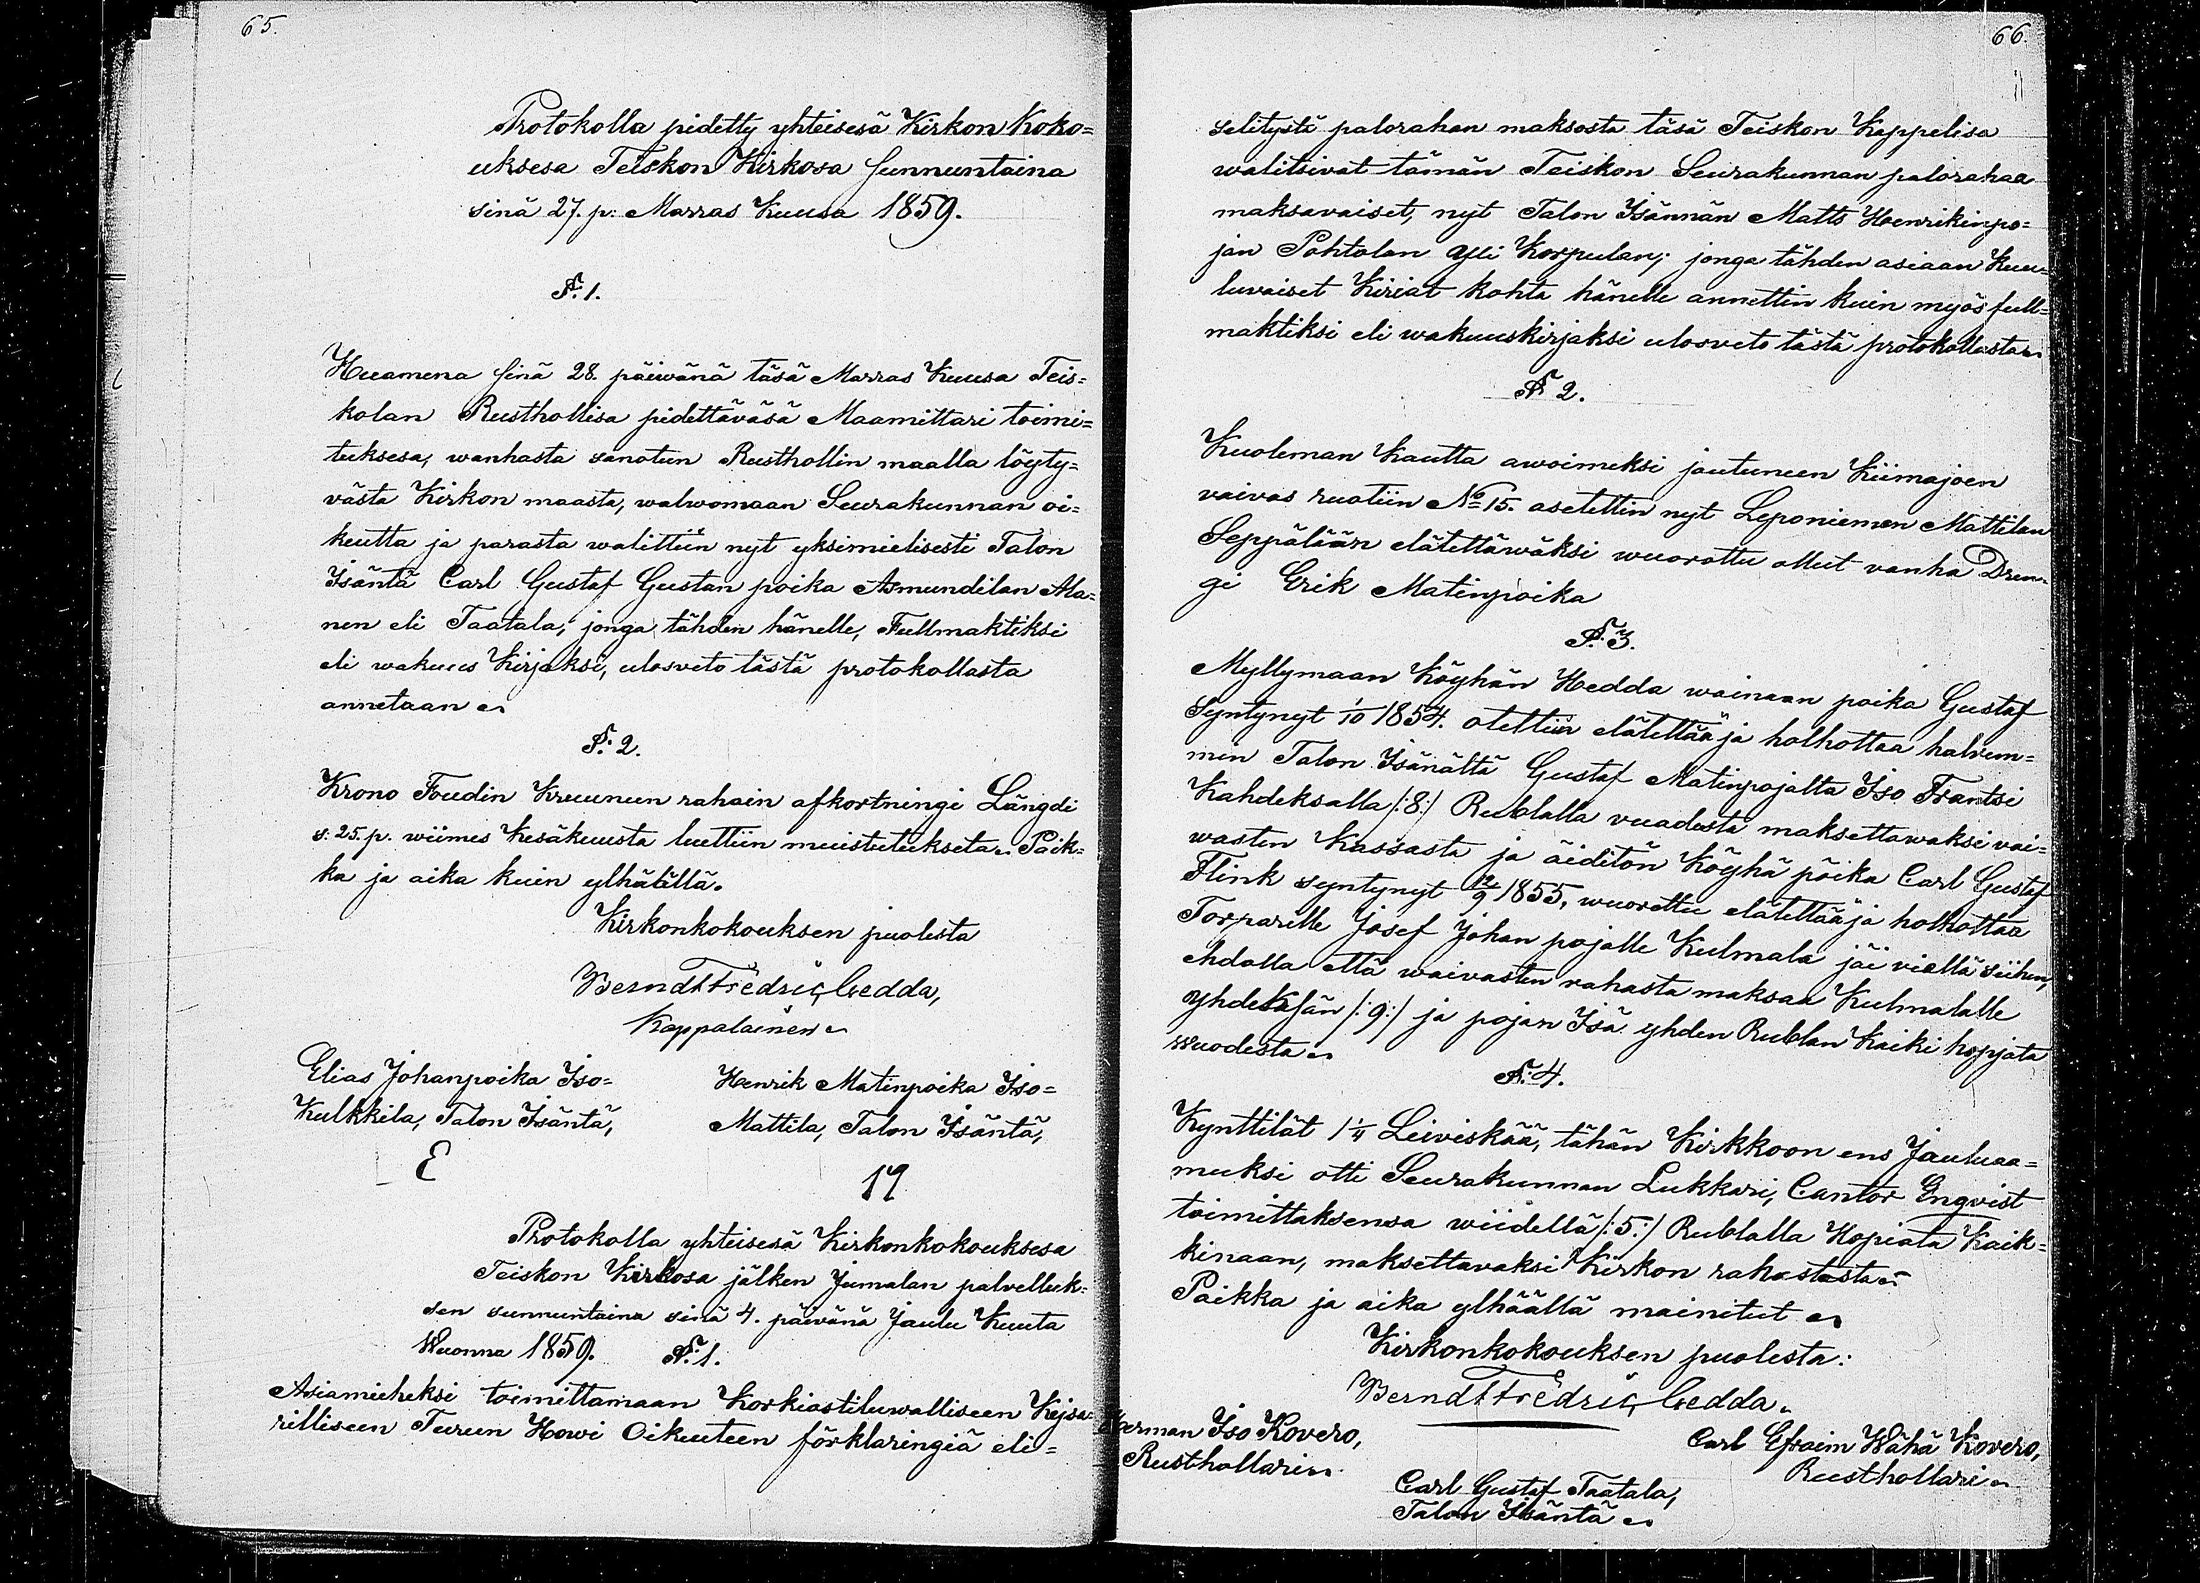 65.
Protokolla pidetty yhteisesä Kirkon Koko=
uksesa Teiskon Kirkosa sunnuntaina
sinä 27. p: Marras Kuusa 1859.
§. 1.
Huamena sinä 28. päiwänä täsä Marras Kuusa Teis=
kolan Rusthollisa pidettäväsä Maamittari toimi=
tuksesa, wanhasta sanotun Rusthollin maalla löyty=
västä Kirkon maasta, walwomaan Seurakunnan oi=
keutta ja parasta walittiin nyt yksimielisesti Talon
Isäntä Carl Gustaf Gustan poika Asmundilan Ala=
nen eli Taatala, jonga tähden hänelle, Fullmaktiksi
eli wakuus Kirjaksi, ulosveto tästä protokollasta
annetaan
§. 2.
Krono Foudin Kruunun rahain afkortningi Längdi
s: 25. p. wiimes Kesäkuusta luettiin muistutukseta. Paik=
ka ja aika kuin ylhäällä.
Kirkonkokouksen puolesta
Berndt Fredric Gedda,
Kappalainen
Elias Johanpoika Iso=
Kulkkila, Talon Isäntä,
Henrik Matinpoika Iso=
Mattila, Talon Isäntä,
Protokolla yhteisesä Kirkonkokouksesa
Teiskon Kirkosa jälken Jumalan palvelluk=
sen sunnuntaina sinä 4. päivänä Joulu Kuuta
Wuonna 1859. §. 1.
Asiamieheksi toimittamaan Korkiastiluwalliseen Kejsa=
rilliseen Turun Howi Oikeuteen förklaringiä eli=
66.
selitystä palorahan maksosta täsä Teiskon Kappelisa
walitsivat tämän Teiskon Seurakunnan palorahaa
maksavaiset, nyt Talon Isännän Matts Henrikinpo=
jan Pohtolan Yli Korpulan; jonga tähden asiaan Kuu=
luvaiset Kiriat kohta hänelle annettin kuin myös full=
maktiksi eli wakuuskirjaksi ulosveto tästä protokollasta
§ 2.
Kuoleman Kautta awoimeksi joutuneen Kiimajoen
vaivas ruotiin No 15. asetettin nyt Leponiemen Mattilan
Seppälään elätettäwäksi wuorottu ollut vanha Dren=
gi Erik Matinpoika
§. 3.
Myllymaan Köyhän Hedda wainaan poika Gustaf
Syntynyt 1/10 1854. otettiin elätettää ja holhottaa halvem=
min Talon Isänältä Gustaf Matinpojalta Iso Frantsi
Kahdeksalla /:8:/ Rublalla vuodesta maksettawaksi vai=
wasten Kassasta ja äiditön Köyhä poika Carl Gustaf
Flink syntynyt 12/9 1855, wuorottu elätettää ja holhottaa
Torparille Josef Johan pojalle Kulmala jäi viellä siihen,
ehdolla että waivasten rahasta maksaa Kulmalalle
Yhdeksän /:9:/ ja pojan Isä yhden Rublan Kaiki hopjata
Wuodesta
§. 4.
Kynttilät 1 1/4 Leiviskää, tähän Kirkkoon ens Jouluaa=
muksi otti Seurakunnan Lukkari, Cantor Engvist
toimittaksensa wiidellä /:5:/ Rublalla Hopiata Kaik=
kinaan, maksettavaksi Kirkon rahastasta
Paikka ja aika ylhäällä mainitut
Kirkonkokouksen puolesta:
Berndt Fredric Gedda.
Herman Iso Kovero,
Rusthollari
Carl Efraim Wähä Kovero,
Rusthollari
Carl Gustaf Taatala,
Talon Isäntä